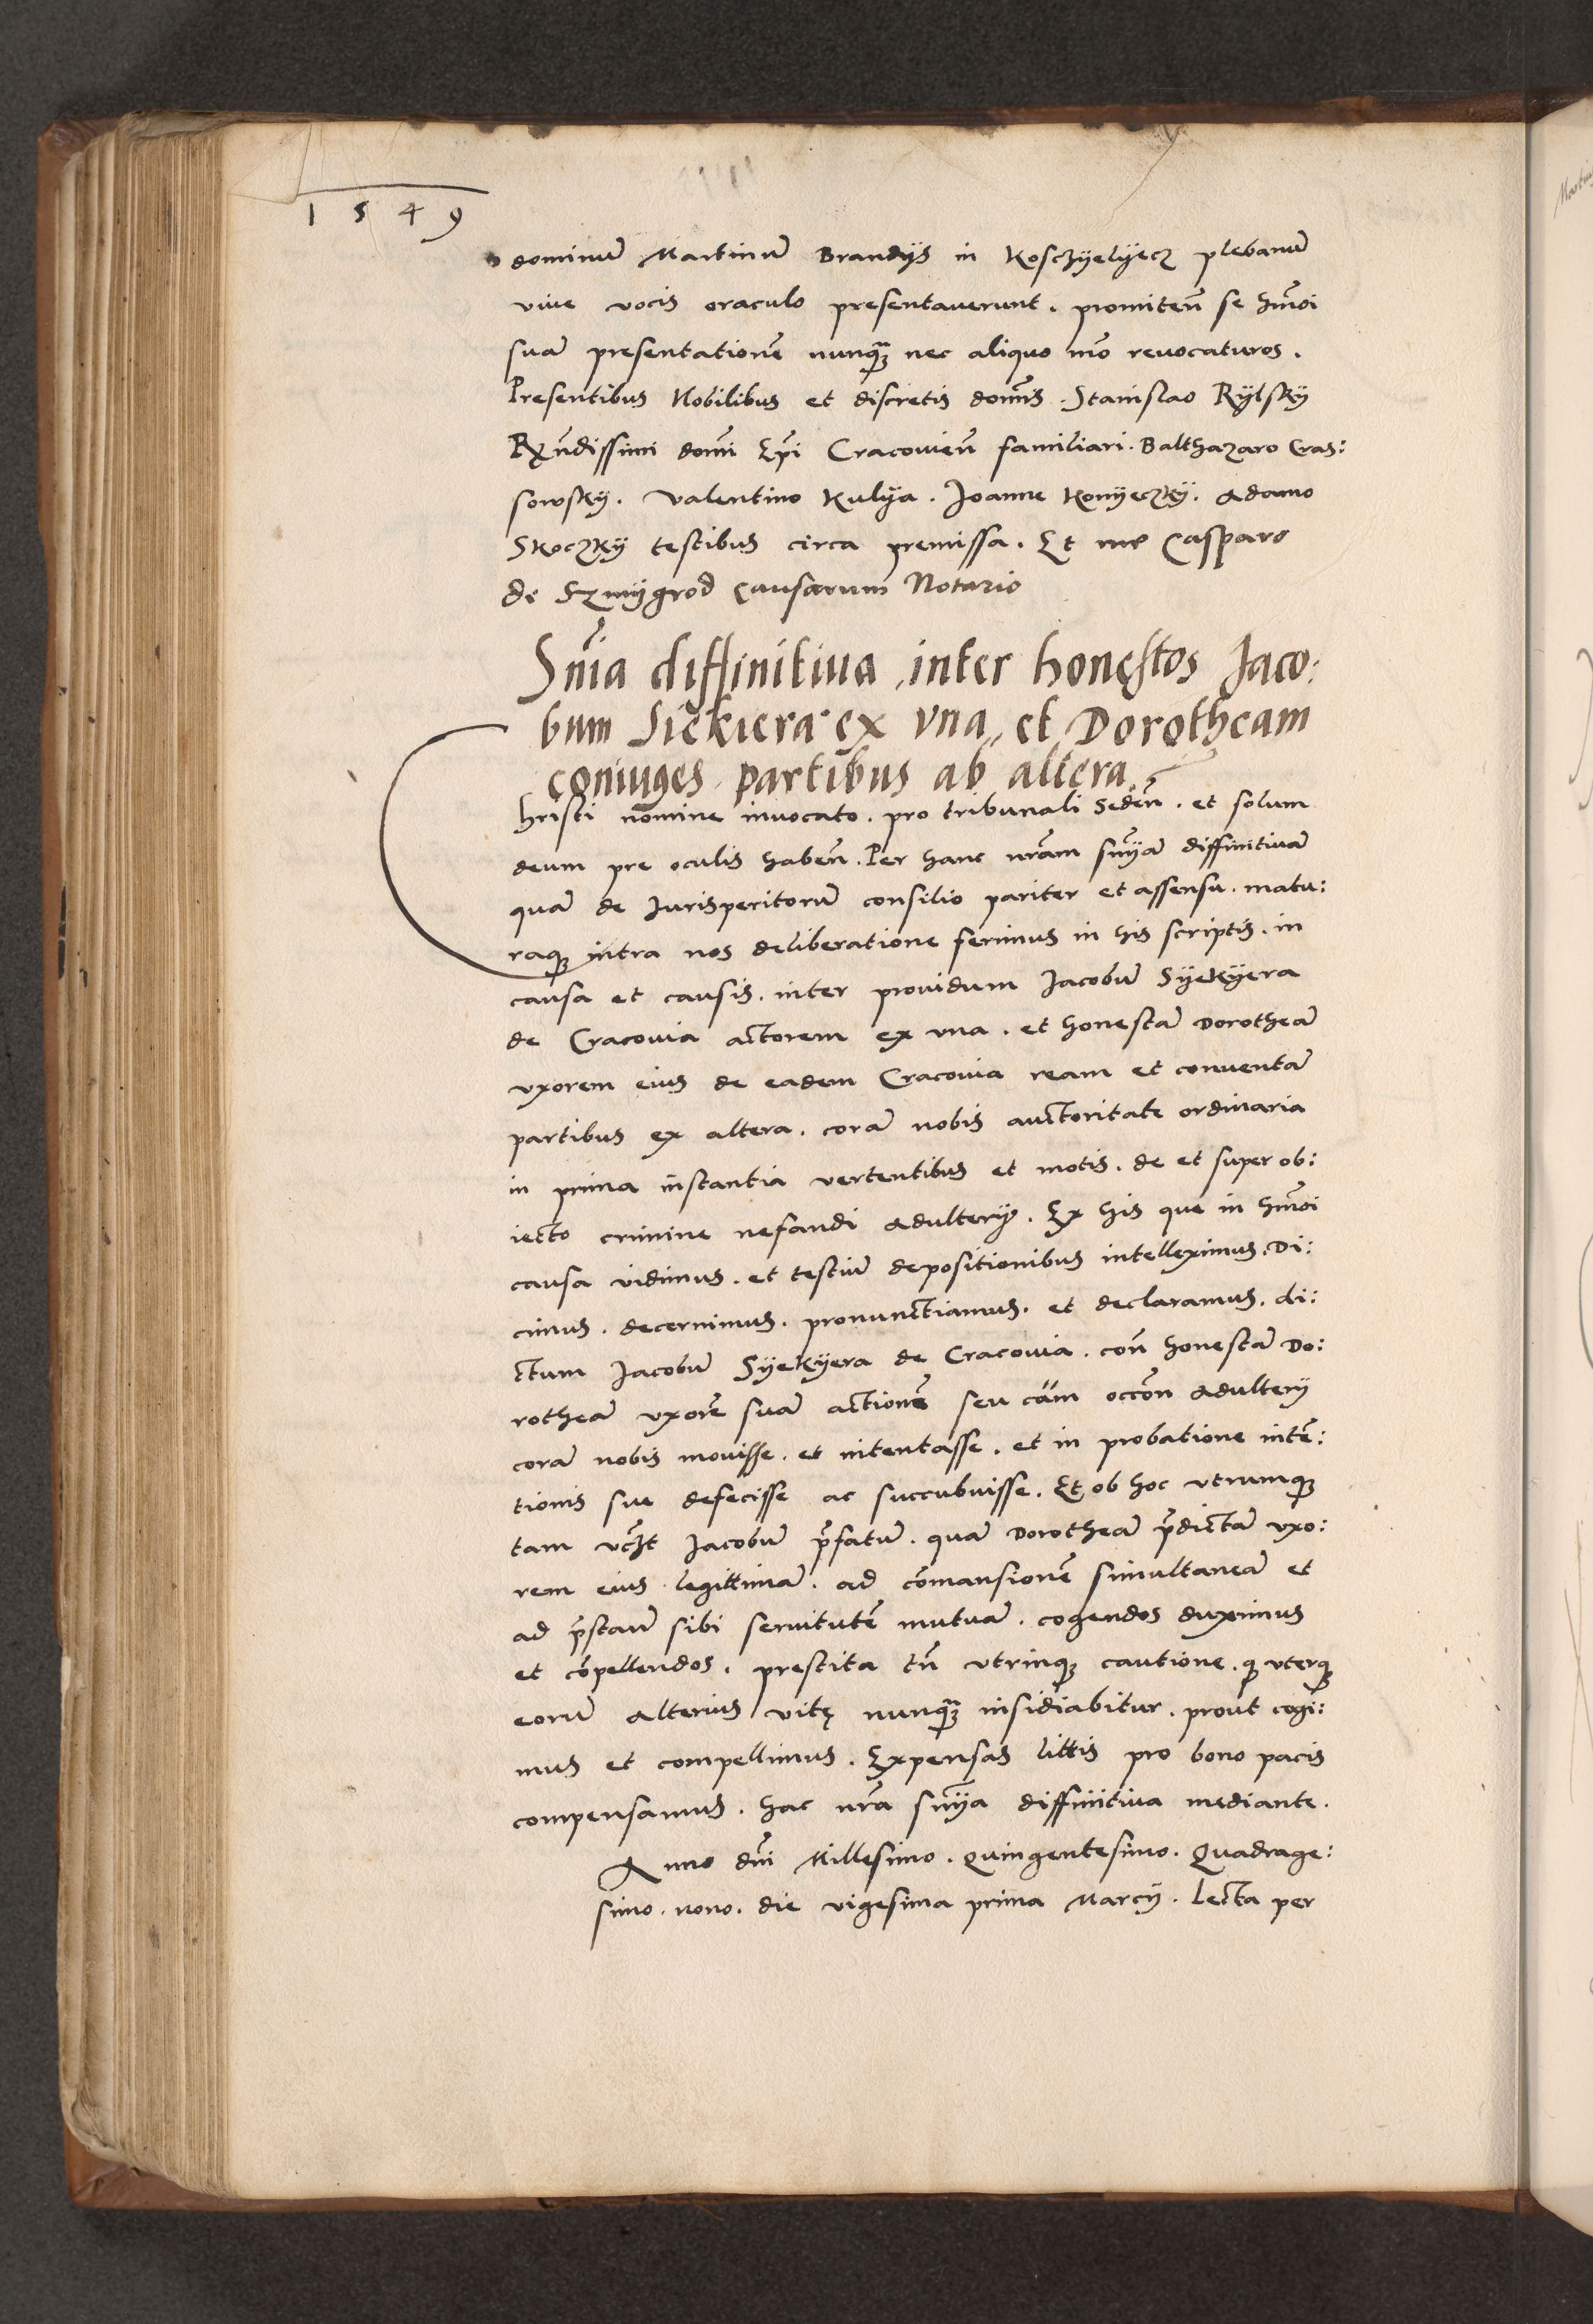 1549
dominū Martinū Brandÿs in Kosczÿelÿecz plebanū
viue vocis oraculo presentauerunt. promiteñ se hm̃oi
suā presentationē nunqȝ nec aliquo mō reuocaturos.
Presentibus Nobilibus et discretis dom̃is. Stanislao Rÿlskÿ
Rẽndissimi dom̃i Ep̃i Cracouieñ familiari. Balthazaro Cras:
sowskÿ. Valentino Kulÿa. Joanne Konÿeczkÿ. Adamo
Skoczkÿ testibus circa premissa. Et me Casparo
de Szmÿgrod Causarum Notario
Sñia diffinitiua inter honestos Jaco:
bum Siekiera ex vna et Dorotheam
coniuges partibus ab altera
hristi nomine inuocato. pro tribunali sedeñ. et solum
deum pre oculis habeñ. Per hanc nr̃am sñiÿā diffinitiuā
quā de Jurisperitorū consilio pariter et assensu. matu:
raqȝ intra nos deliberatione ferimus in his scriptis. in
causa et causis. inter prouidum Jacobū Sÿekÿera
de Cracouia actorem ex vna. et honestā Dorotheā
vxorem eius de eadem Cracouia ream et conuentā
partibus ex altera. corā nobis auctoritate ordinaria
in prima instantia vertentibus et motis. de et super ob:
iecto crimine nefandi adulterÿ. Ex his que in hm̃oi
causa vidimus. et testiū depositionibus intelleximus. Di:
cimus. decernimus. pronunctiamus. et declaramus. di:
ctum Jacobū Sÿekÿera de Cracouia. coñ honestā Do:
rotheā vxorē suā actionē seu cām occōn adulterÿ
corā nobis mouisse. et intentasse. et in probatione intē:
tionis sue defecisse ac succubuisse. Et ob hoc vtrumqȝ
tam vcȝt Jacobū p̄fatū. quā Dorotheā p̄dictā vxo:
rem eius legittimā. ad cōmansionē simultaneā et
ad p̄stanū sibi seruitutē mutuā. cogendos duximus
et cōpellendos. prestita tñ vtrinqȝ cautione. qȝ vterqȝ
eorū alterius vitę nunqȝ insidiabitur. prout cogi:
mus et compellimus. Expensas littis pro bono pacis
compensamus. hac nr̃a sñiÿa diffinitiua mediante.
Anno dñi Millesimo. Quingentesimo. Quadrage:
simo. nono. die vigesima prima Marcÿ. Lecta per